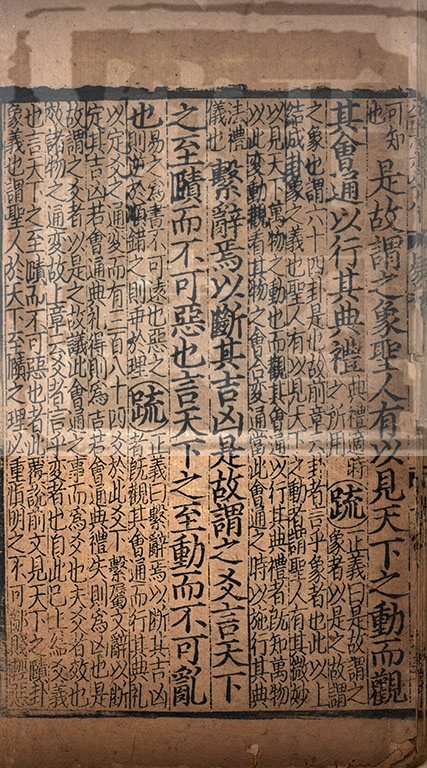 可知
也
是故謂之象聖人有以見天下之動而觀
其會通以行其典禮
典禮適時
之所用
疏
正義曰是故謂之
象者以是之故謂
之象也謂六十四卦是也故前章云卦者言乎象者也此以上
結成卦象之義也聖人有以見天下之動者謂聖人有其微妙
以見天下萬物之動也而觀其會通以行其典禮者既知萬物
以此變動觀看其物之會合變通當此會通之時以施行其典
法禮
儀也
繫辭焉以斷其吉凶是故謂之爻言天下
之至賾而不可惡也言天下之至動而不可亂
也
易之為書不可遠也惡之
則逆於順錯之則乖於理
疏
正義曰繫辭焉以斷其吉凶
者既觀其會通而行其典礼
以定爻之通變而有三百八十四爻於此爻下繫屬文辭以斷
定其吉凶若會通典禮得則為吉若會通典禮失則為凶也是
故謂之爻者以是之故議此會通之事而為爻也夫爻者效也
效諸物之通變故上章云爻者言乎變者也自此已上結爻義
也言天下之至賾而不可惡也者此覆說前文見天下之賾卦
象義也謂聖人於天下至賾之理必重慎明之不可鄙賤輕惡